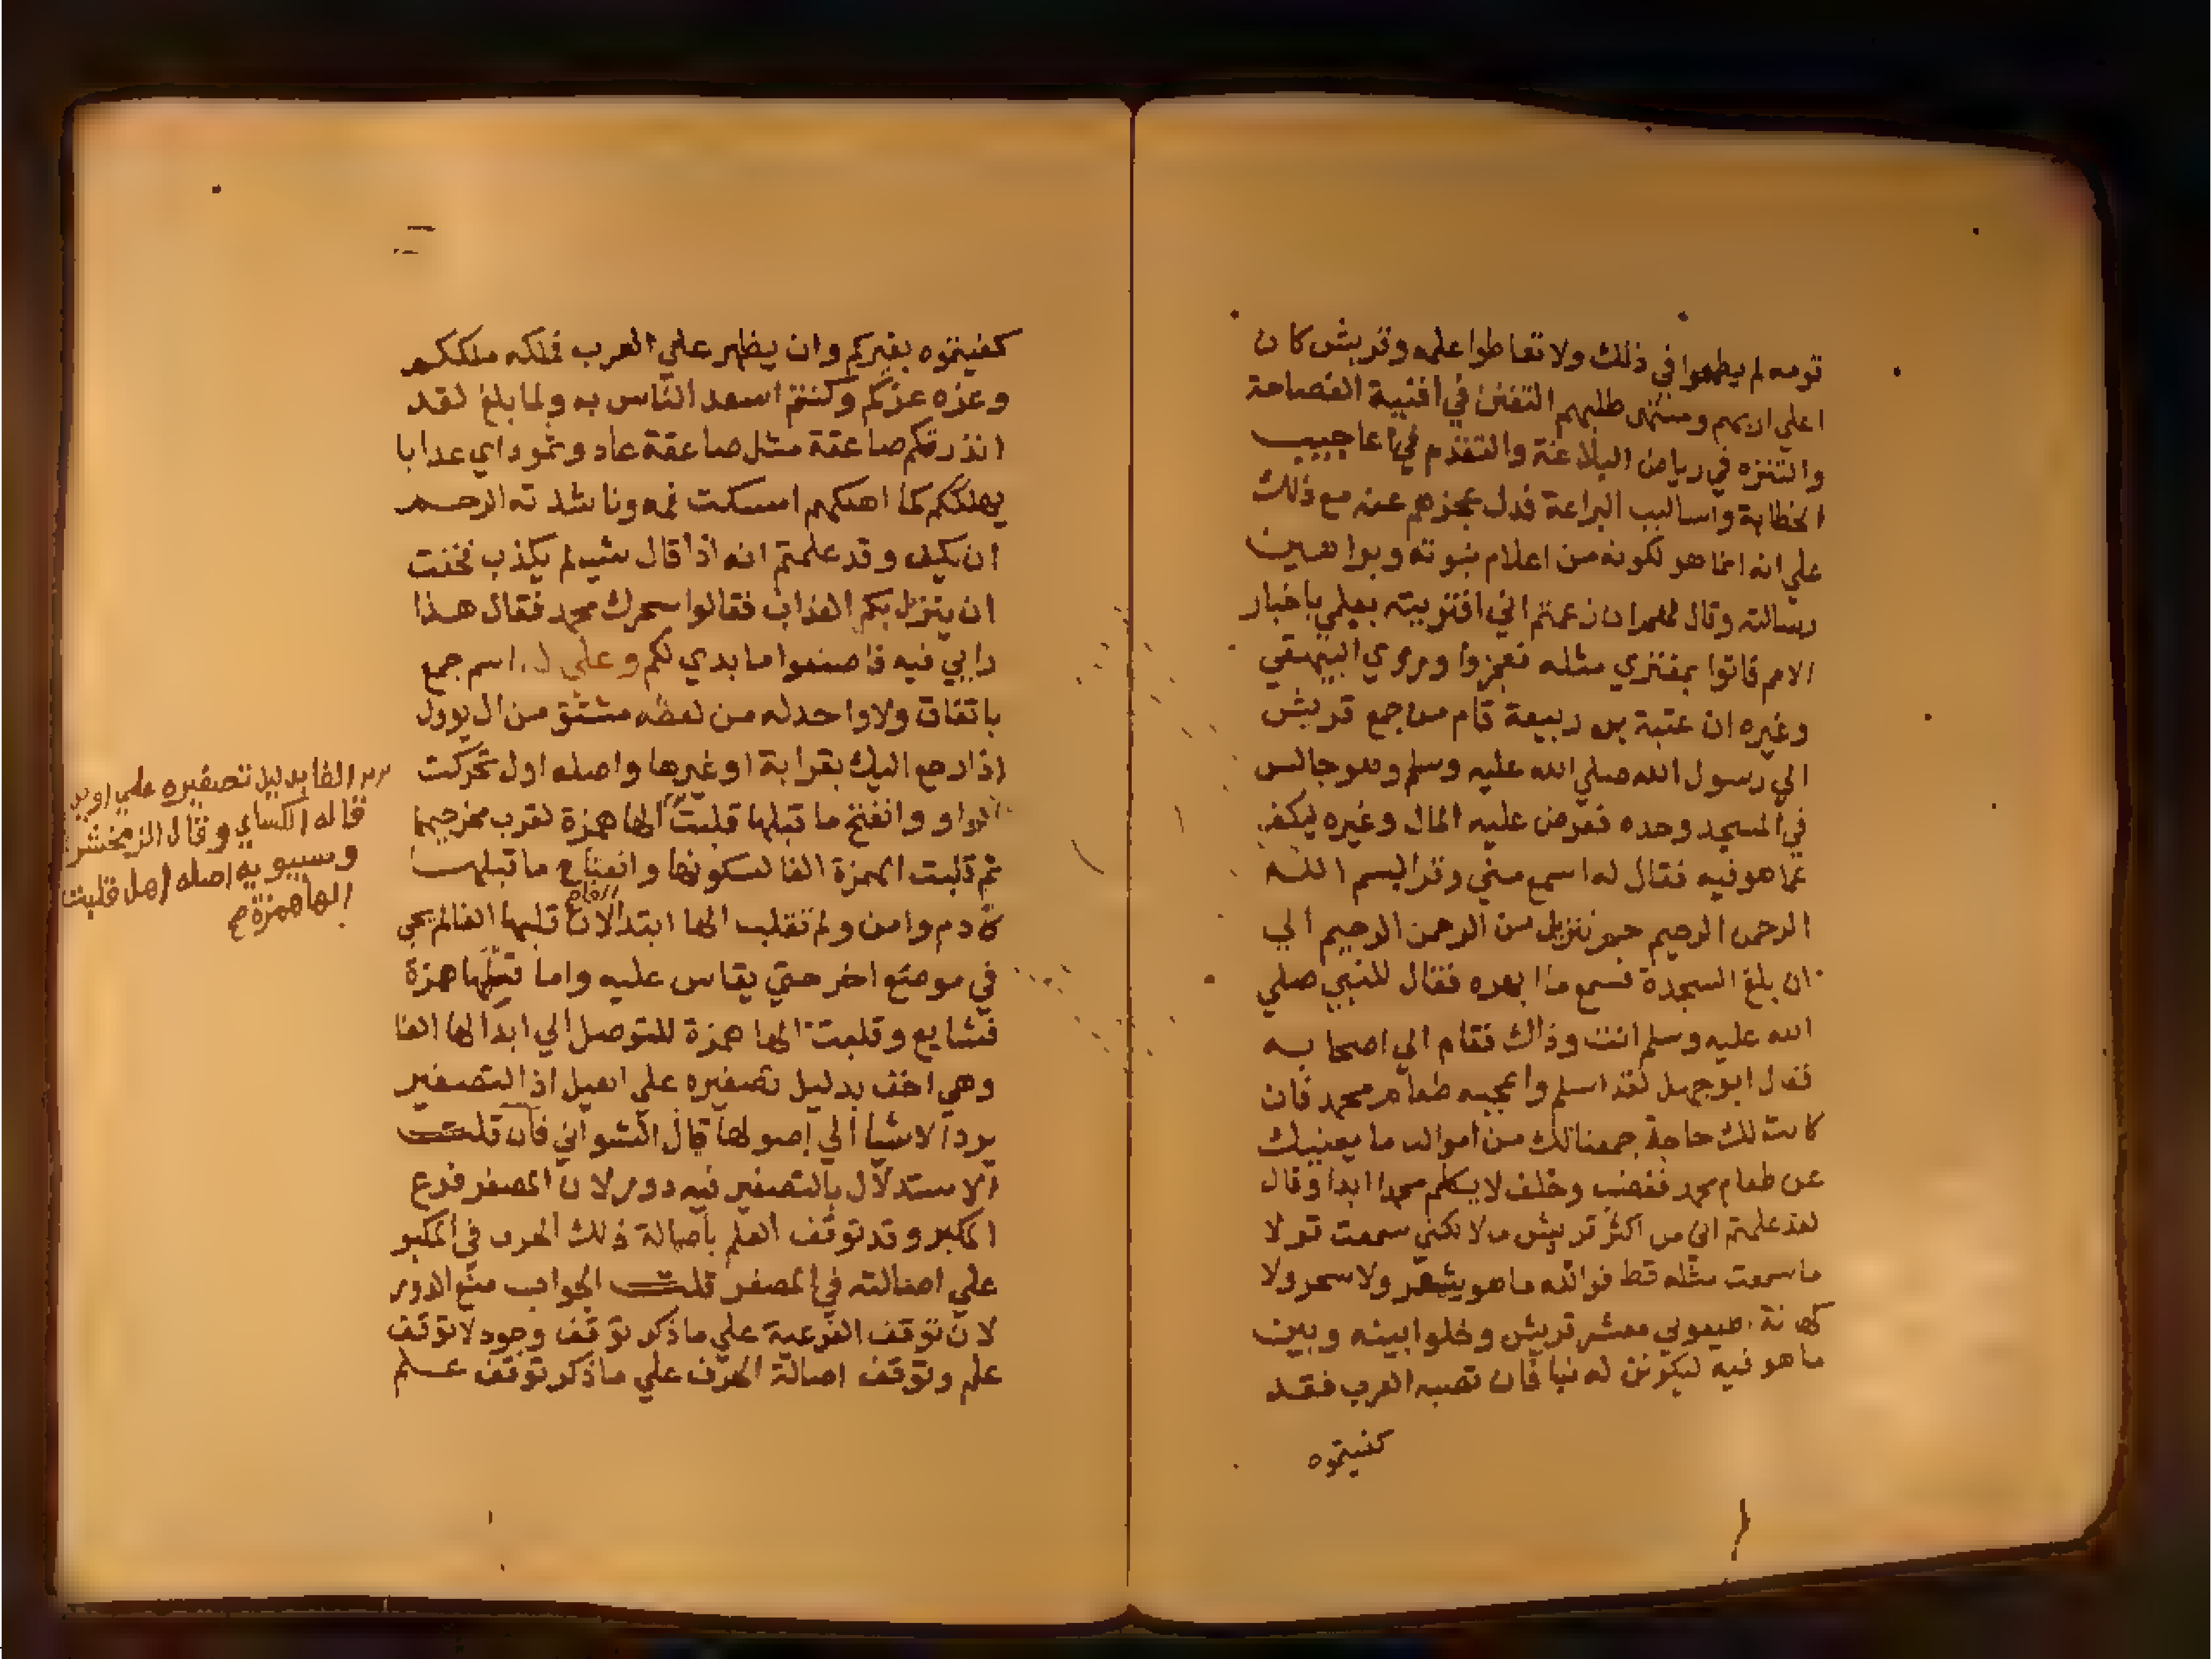 قومه لم يطمعوا في ذلك ولا تعاطوا علمه وقريش كان
اعلي اربهم ومنتهى طلبهم التفنن في افنية الفصاحة
والتنزه في رياض البلاغة والتقدم في اعاجيب
الخطابة واساليب البراعة فدل عجزهم عنه مع ذلك
علي انه انما هو لكونه من اعلام نبوته وبراهين
رسالته وقال لهم ان زعمتم اني افتريته بعلمي باخبار
الامم فاتوا بمفتري مثله فعجزوا وروي البيهقي
وغيره ان عتبة بن ربيعة قام من جمع قريش
الي رسول الله صلي الله عليه وسلم وهو جالس
في المسجد وحده فعرض عليه المال وغيره ليكف
عما هو فيه فقال له اسمع مني وقرا بسم الله
الرحمن الرحيم حم تنزيل من الرحمن الرحيم الي
ان بلغ السجدة فسمع ما بعده فقال للنبي صلي
الله عليه وسلم انت وذاك فقام الي اصحابه
فقال ابو جهل لقد اسلم واعجبه طعام محمد فان
كانت لك حاجة جمعنا لك من اموالنا ما يغنيك
عن طعام محمد فغضب وحلف لا يكلم محمدا ابدا وقال
لقد علمتم اني من اكثر قريش مالا لكني سمعت قولا
ما سمعت مثله قط فوالله ما هو بشعر ولا سحر ولا
كهانة اطيعوني معشر قريش وخلوا بينه وبين
ما هو فيه ليكونن له نبا فان تصبه العرب فقد
كفيتموه
كفيتموه بغيركم وان يظهر علي العرب فملكه ملككم
وعزه عزكم وكنتم اسعد الناس به ولما بلغ لقد
انذرتكم صاعقة مثل صاعقة عاد وثمود اي عذابا
يهلككم كما اهلكهم امسكت فمه وناشدته الرحم
ان يكف وقد علمتم انه اذا قال شيا لم يكذب فخفت
ان ينزل بكم العذاب فقالوا سحرك محمد فقال هذا
رايي فيه فاصنعوا ما بدي لكم وعلي ال اسم جمع
باتفاق ولا واحد له من لفظه مشتق من ال يوول
اذا رجع اليك بقرابة او غيرها واصله اول تحركت
الواو وانفتح ما قبلها قلبت الها همزة لقرب مخرجيهما
ثم قلبت الهمزة الفا لسكونها وانفتاح ما قبلها
كادم وامن ولم تقلب الها ابتدا الفا لان قلبها الفا لم يجي
في موضع اخر حتي يقاس عليه واما قلبها همزة
فشايع وقلبت الها همزة للتوصل الي ابدالها الفا
وهي اخف بدليل تصغيره علي اهيل اذ التصغير
يرد الاشيا الي اصولها قال الشنواني فان قلت
الاستدلال بالتصغير فيه دور لان المصغر فرع
المكبر وقد توقف العلم باصالة ذلك الحرف في المكبر
علي اصالته في المصغر قلت الجواب منع الدور
لان توقف الفرعية علي ما ذكر توقف وجود لا توقف
علم وتوقف اصالة الحرف علي ما ذكر توقف علم
الفا بدليل تصغيره علي اويل
قاله الكساي وقال الزمخشري
وسيبويه اصله اهل قلبت
الها همزة